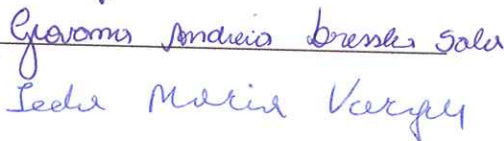 Giovana Andreia Dressler Sala
Ieda Maria Vargas